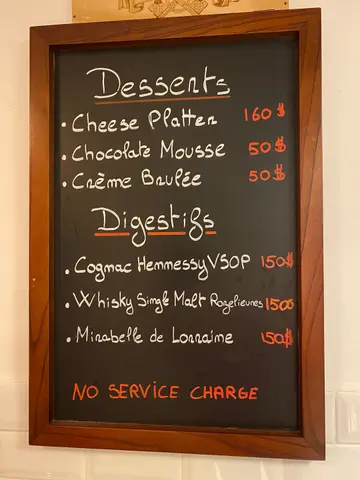 Desserts
• Cheese Platter 160$
• Chocolate Mousse 50$
• Crème Brulée 50$
Digestifs
• Cognac Hemmessy VSOP 150$
• Whisky Simgle Malt Rozelieunes 150$
• Mirabelle de Lorraine 150$
NO SERVICE CHARGE